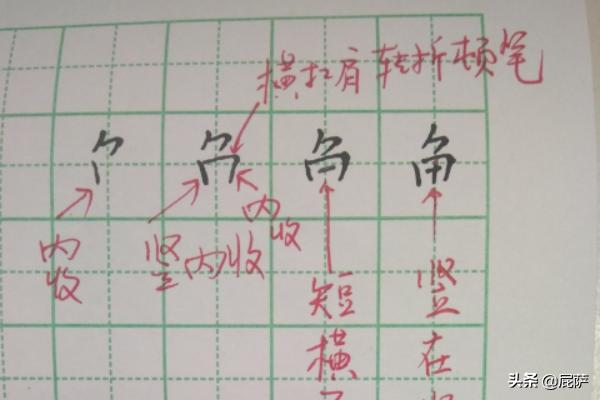 横扛肩转折顿笔
角
内收
竖内收
内收
短横
竖在
头条 @屁萨